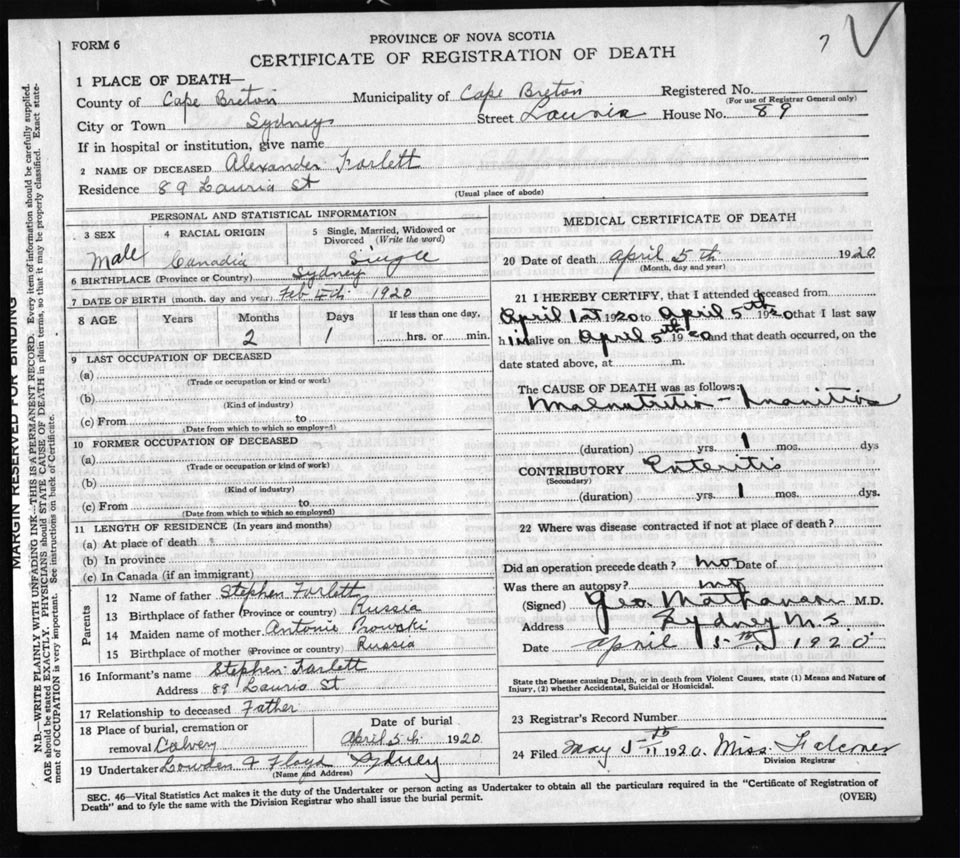 PROVINCE OF NOVA SCOTIA
FORM 6
7
CERTIFICATE OF REGISTRATION OF DEATH
1 PLACE OF DEATH—
County of Cape Breton Municipality of Cape Breton Registered No.
(For use of Registrar General only)
City or Town Sydney Street Lauria House No. 89
If in hospital or institution, give name
2 NAME OF DECEASED Alexander Farlett
Residence 89 Lauria St
(Usual place of abode)
PERSONAL AND STATISTICAL INFORMATION
3 SEX 4 RACIAL ORIGIN 5 Single, Married, Widowed or Divorced (Write the word)
Male Canadia Single
6 BIRTHPLACE (Province or Country) Sydney
7 DATE OF BIRTH (month, day and year) Feb 4th 1920
8 AGE Years Months Days If less than one day,
2 1 hrs. or min.
9 LAST OCCUPATION OF DECEASED
(a)
(Trade or occupation or kind or work)
(b)
(Kind of industry)
(c) From to
(Date from which to which so employed)
10 FORMER OCCUPATION OF DECEASED
(a)
(Trade or occupation or kind of work)
(b)
(Kind of industry)
(c) From to
(Date from which to which so employed)
11 LENGTH OF RESIDENCE (In years and months)
(a) At place of death
(b) In province
(c) In Canada (if an immigrant)
Parents
12 Name of father Stephen Farlett
13 Birthplace of father (Province or country) Russia
14 Maiden name of mother Antonie Prowski
15 Birthplace of mother (Province or country) Russia
16 Informant's name Stephen Farlett
Address 89 Lauria St
17 Relationship to deceased Father
18 Place of burial, cremation or removal Calvery
Date of burial
April 5th 1920
19 Undertaker Lowden & Floyd Sydney
(Name and Address)
MEDICAL CERTIFICATE OF DEATH
20 Date of death April 5th 1920
(Month, day and year)
21 I HEREBY CERTIFY, that I attended deceased from
April 1st 1920 to April 5th 1920 that I last saw
him alive on April 5th 1920 and that death occurred, on the
date stated above, at m.
The CAUSE OF DEATH was as follows:
Malnutritio - Inanition
(duration) yrs. 1 mos. dys
CONTRIBUTORY Enteritis
(Secondary)
(duration) yrs. 1 mos. dys.
22 Where was disease contracted if not at place of death?
Did an operation precede death? no Date of
Was there an autopsy? no
(Signed) Geo. M.D.
Address Sydney N.S.
Date April 5th 1920
State the Disease causing Death, or in death from Violent Causes, state (1) Means and Nature of Injury, (2) whether Accidental, Suicidal or Homicidal.
23 Registrar's Record Number
24 Filed May 5th 1920. Miss Falconer
Division Registrar
SEC. 46—Vital Statistics Act makes it the duty of the Undertaker or person acting as Undertaker to obtain all the particulars required in the "Certificate of Registration of
Death" and to fyle the same with the Division Registrar who shall issue the burial permit.
(OVER)
MARGIN RESERVED FOR BINDING
N.B.—WRITE PLAINLY WITH UNFADING INK—THIS IS A PERMANENT RECORD. Every item of information should be carefully supplied.
AGE should be stated EXACTLY. PHYSICIANS should STATE CAUSE OF DEATH in plain terms, so that it may be properly classified. Exact state-
ment of OCCUPATION is very important. See instructions on back of Certificate.